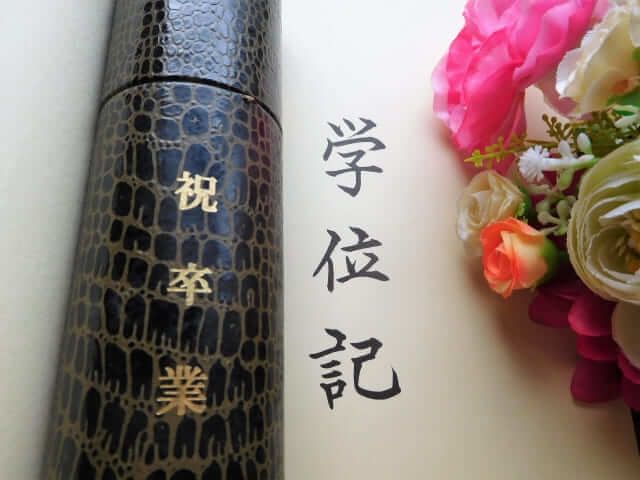 祝卒業
学位記